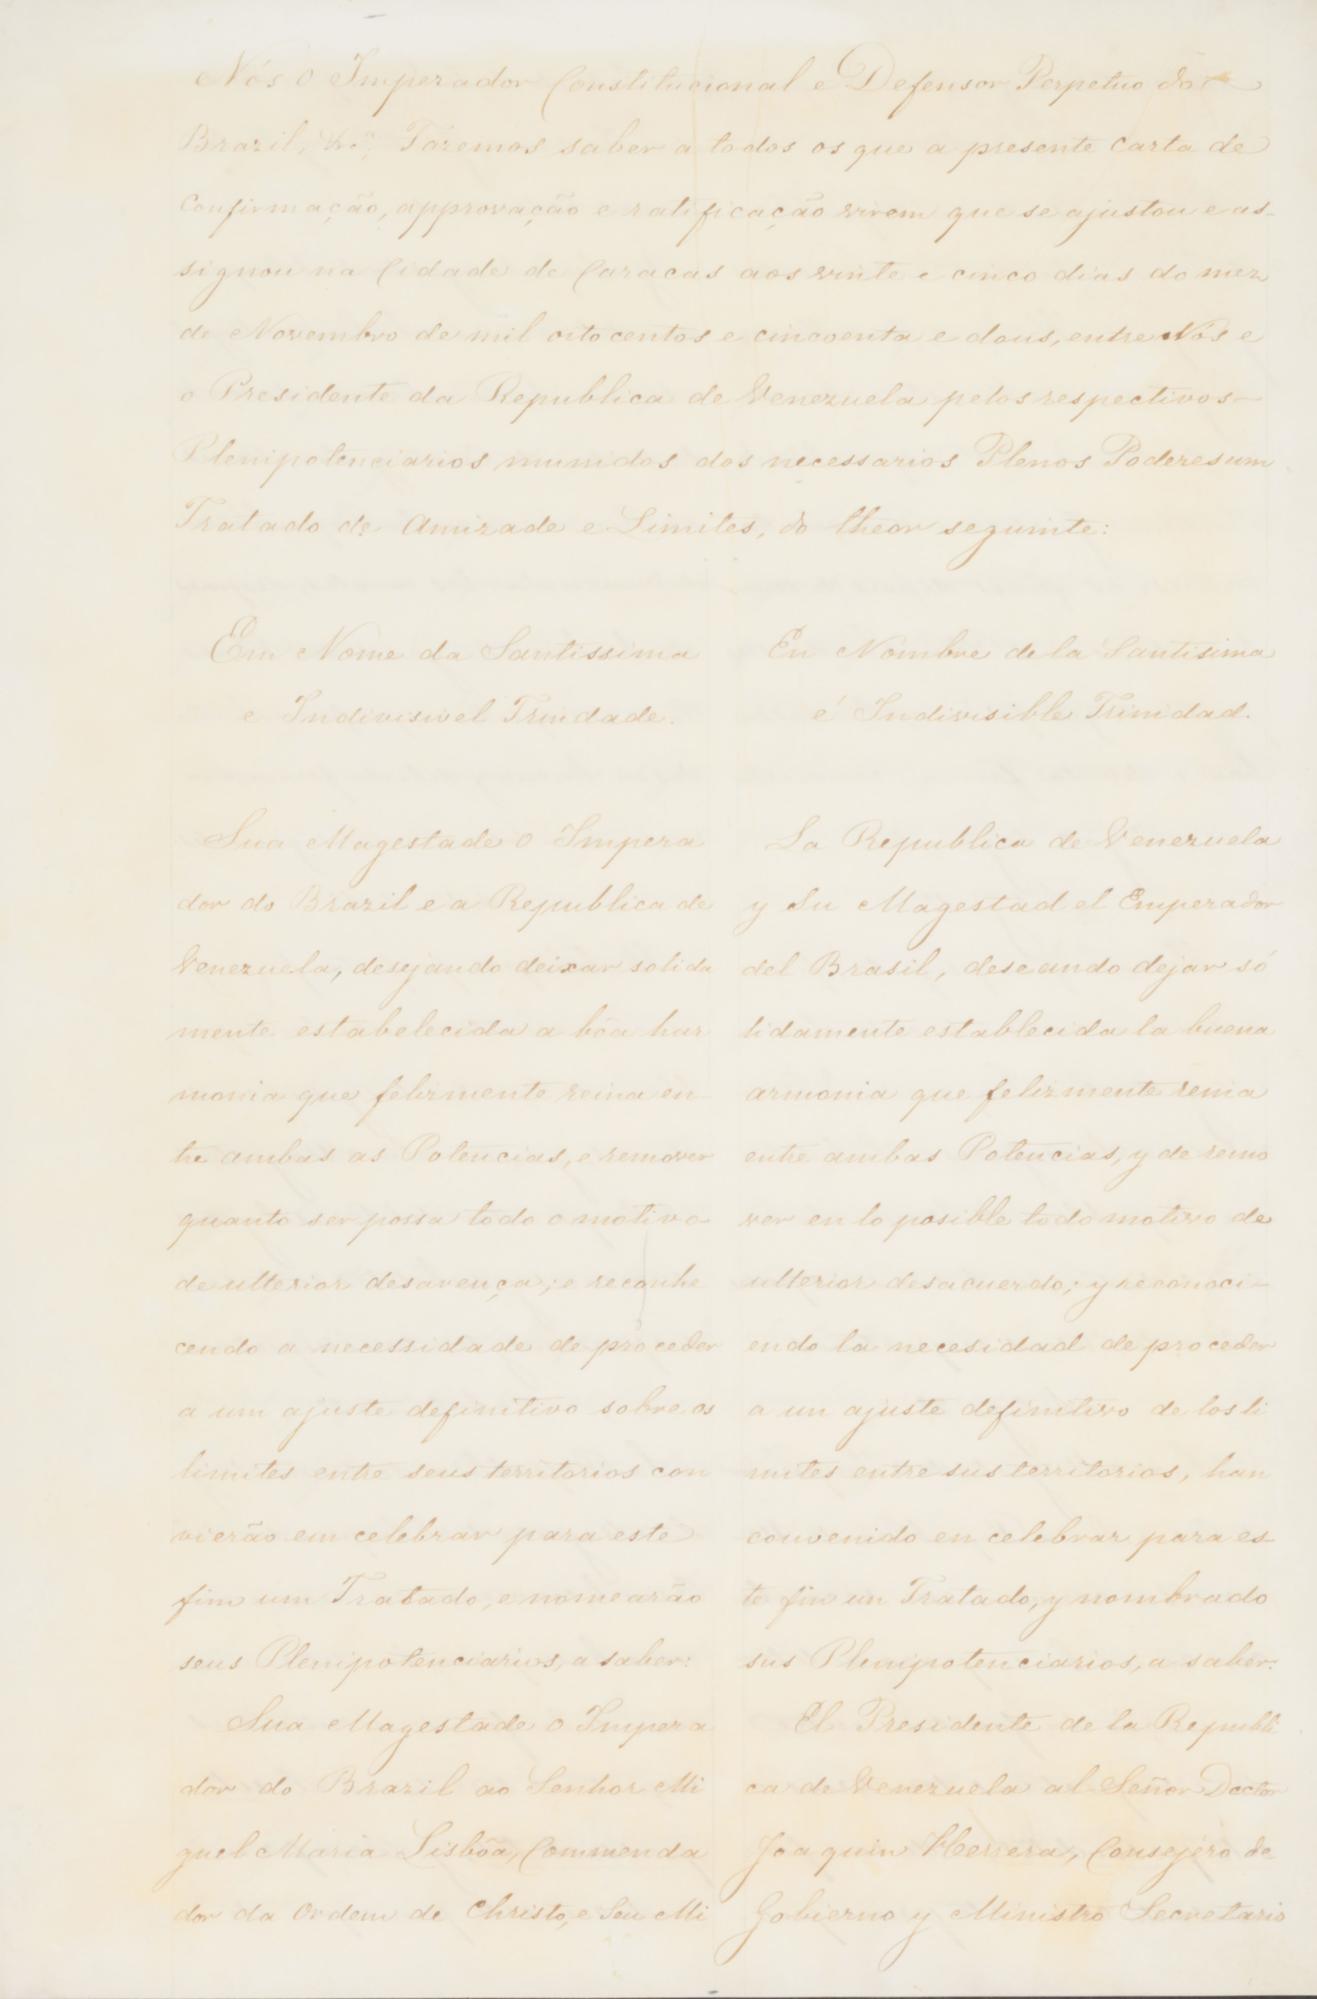 Nós o Imperador Constitucional e Defensor Perpetuo do
Brazil, &c.ª, Fazemos saber a todos os que a presente Carta de
Confirmação, approvação e ratificação virem que se ajustou e as-
signou na Cidade de Caracas aos vinte e cinco dias do mez
de Novembro de mil oito centos e cincoenta e dous, entre Nós e
o Presidente da Republica de Venezuela pelos respectivos
Plenipotenciarios munidos dos necessarios Plenos Poderes um
Tratado de Amizade e Limites, do theor seguinte:
Em Nome da Santissima
e Indivisivel Trindade.
Sua Magestade o Impera
dor do Brazil e a Republica de
Venezuela, desejando deixar solida
mente estabelecida a bôa har
monia que felizmente reina en
tre ambas as Potencias, e remover
quanto ser possa todo o motivo
de ulterior desavença; e reconhe
cendo a necessidade de proceder
a um ajuste definitivo sobre os
limites entre seus territorios con
vierão em celebrar para este
fim um Tratado, e nomearão
seus Plenipotenciarios, a saber:
Sua Magestade o Impera
dor do Brazil ao Senhor Mi
guel Maria Lisbôa, Commenda
dor da Ordem de Christo, e Seu Mi
En Nombre de la Santisima
é Indivisible Trinidad.
La Republica de Venezuela
y Su Magestad el Emperador
del Brasil, deseando dejar só
lidamente establecida la buena
armonia que felizmente reina
entre ambas Potencias, y de remo
ver en lo posible todo motivo de
ulterior desacuerdo; y reconoci-
endo la necesidad de proceder
a un ajuste definitivo de los li
mites entre sus territorios, han
convenido en celebrar para es
te fin un Tratado, y nombrado
sus Plenipotenciarios, a saber:
El Presidente de la Republi
ca de Venezuela al Señor Doctor
Joaquin Herrera, Consejéro de
Gobierno y Ministro Secretario